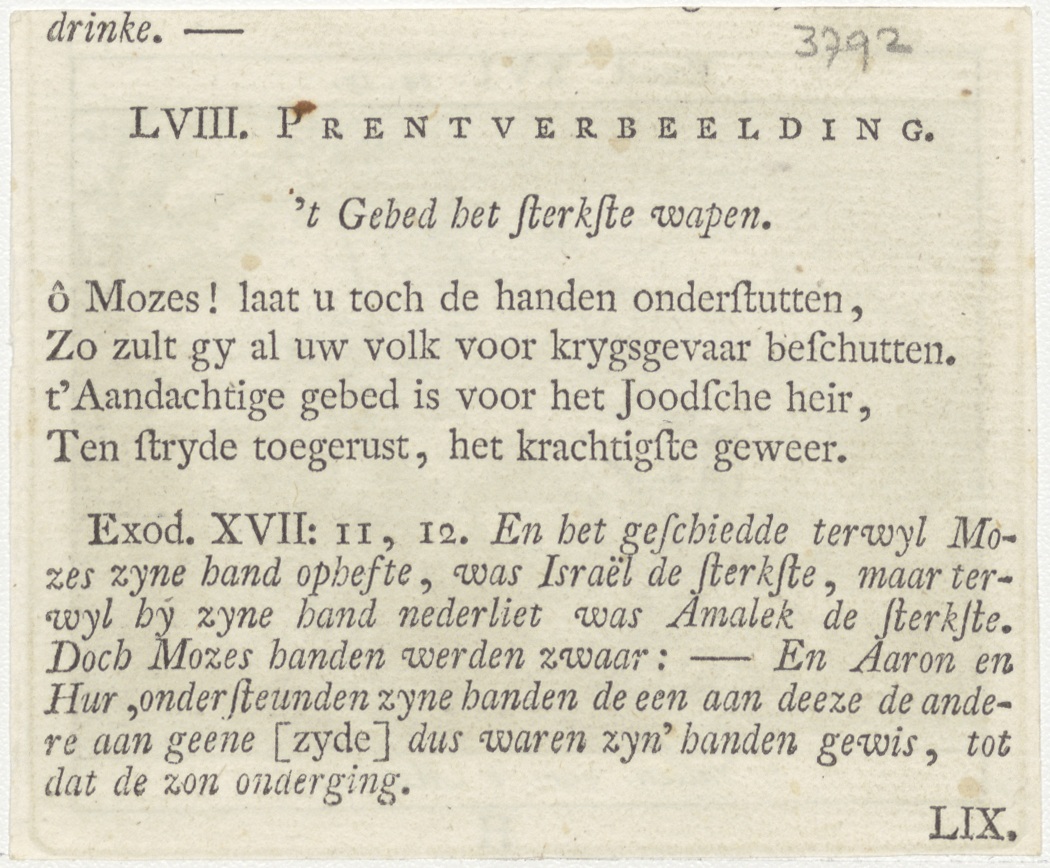 drinke. —
3792
LVIII. PRENTVERBEELDING.
't Gebed het ſterkſte wapen.
ô Mozes! laat u toch de handen onderſtutten,
Zo zult gy al uw volk voor krygsgevaar beſchutten.
t'Aandachtige gebed is voor het Joodſche heir,
Ten ſtryde toegerust, het krachtigſte geweer.
Exod. XVII: 11, 12. En het geſchiedde terwyl Mo-
zes zyne hand ophefte, was Israël de ſterkſte, maar ter-
wyl hy zyne hand nederliet was Amalek de ſterkſte.
Doch Mozes handen werden zwaar: — En Aaron en
Hur ,onderſteunden zyne handen de een aan deeze de ande-
re aan geene [zyde] dus waren zyn' handen gewis, tot
dat de zon onderging.
LIX.